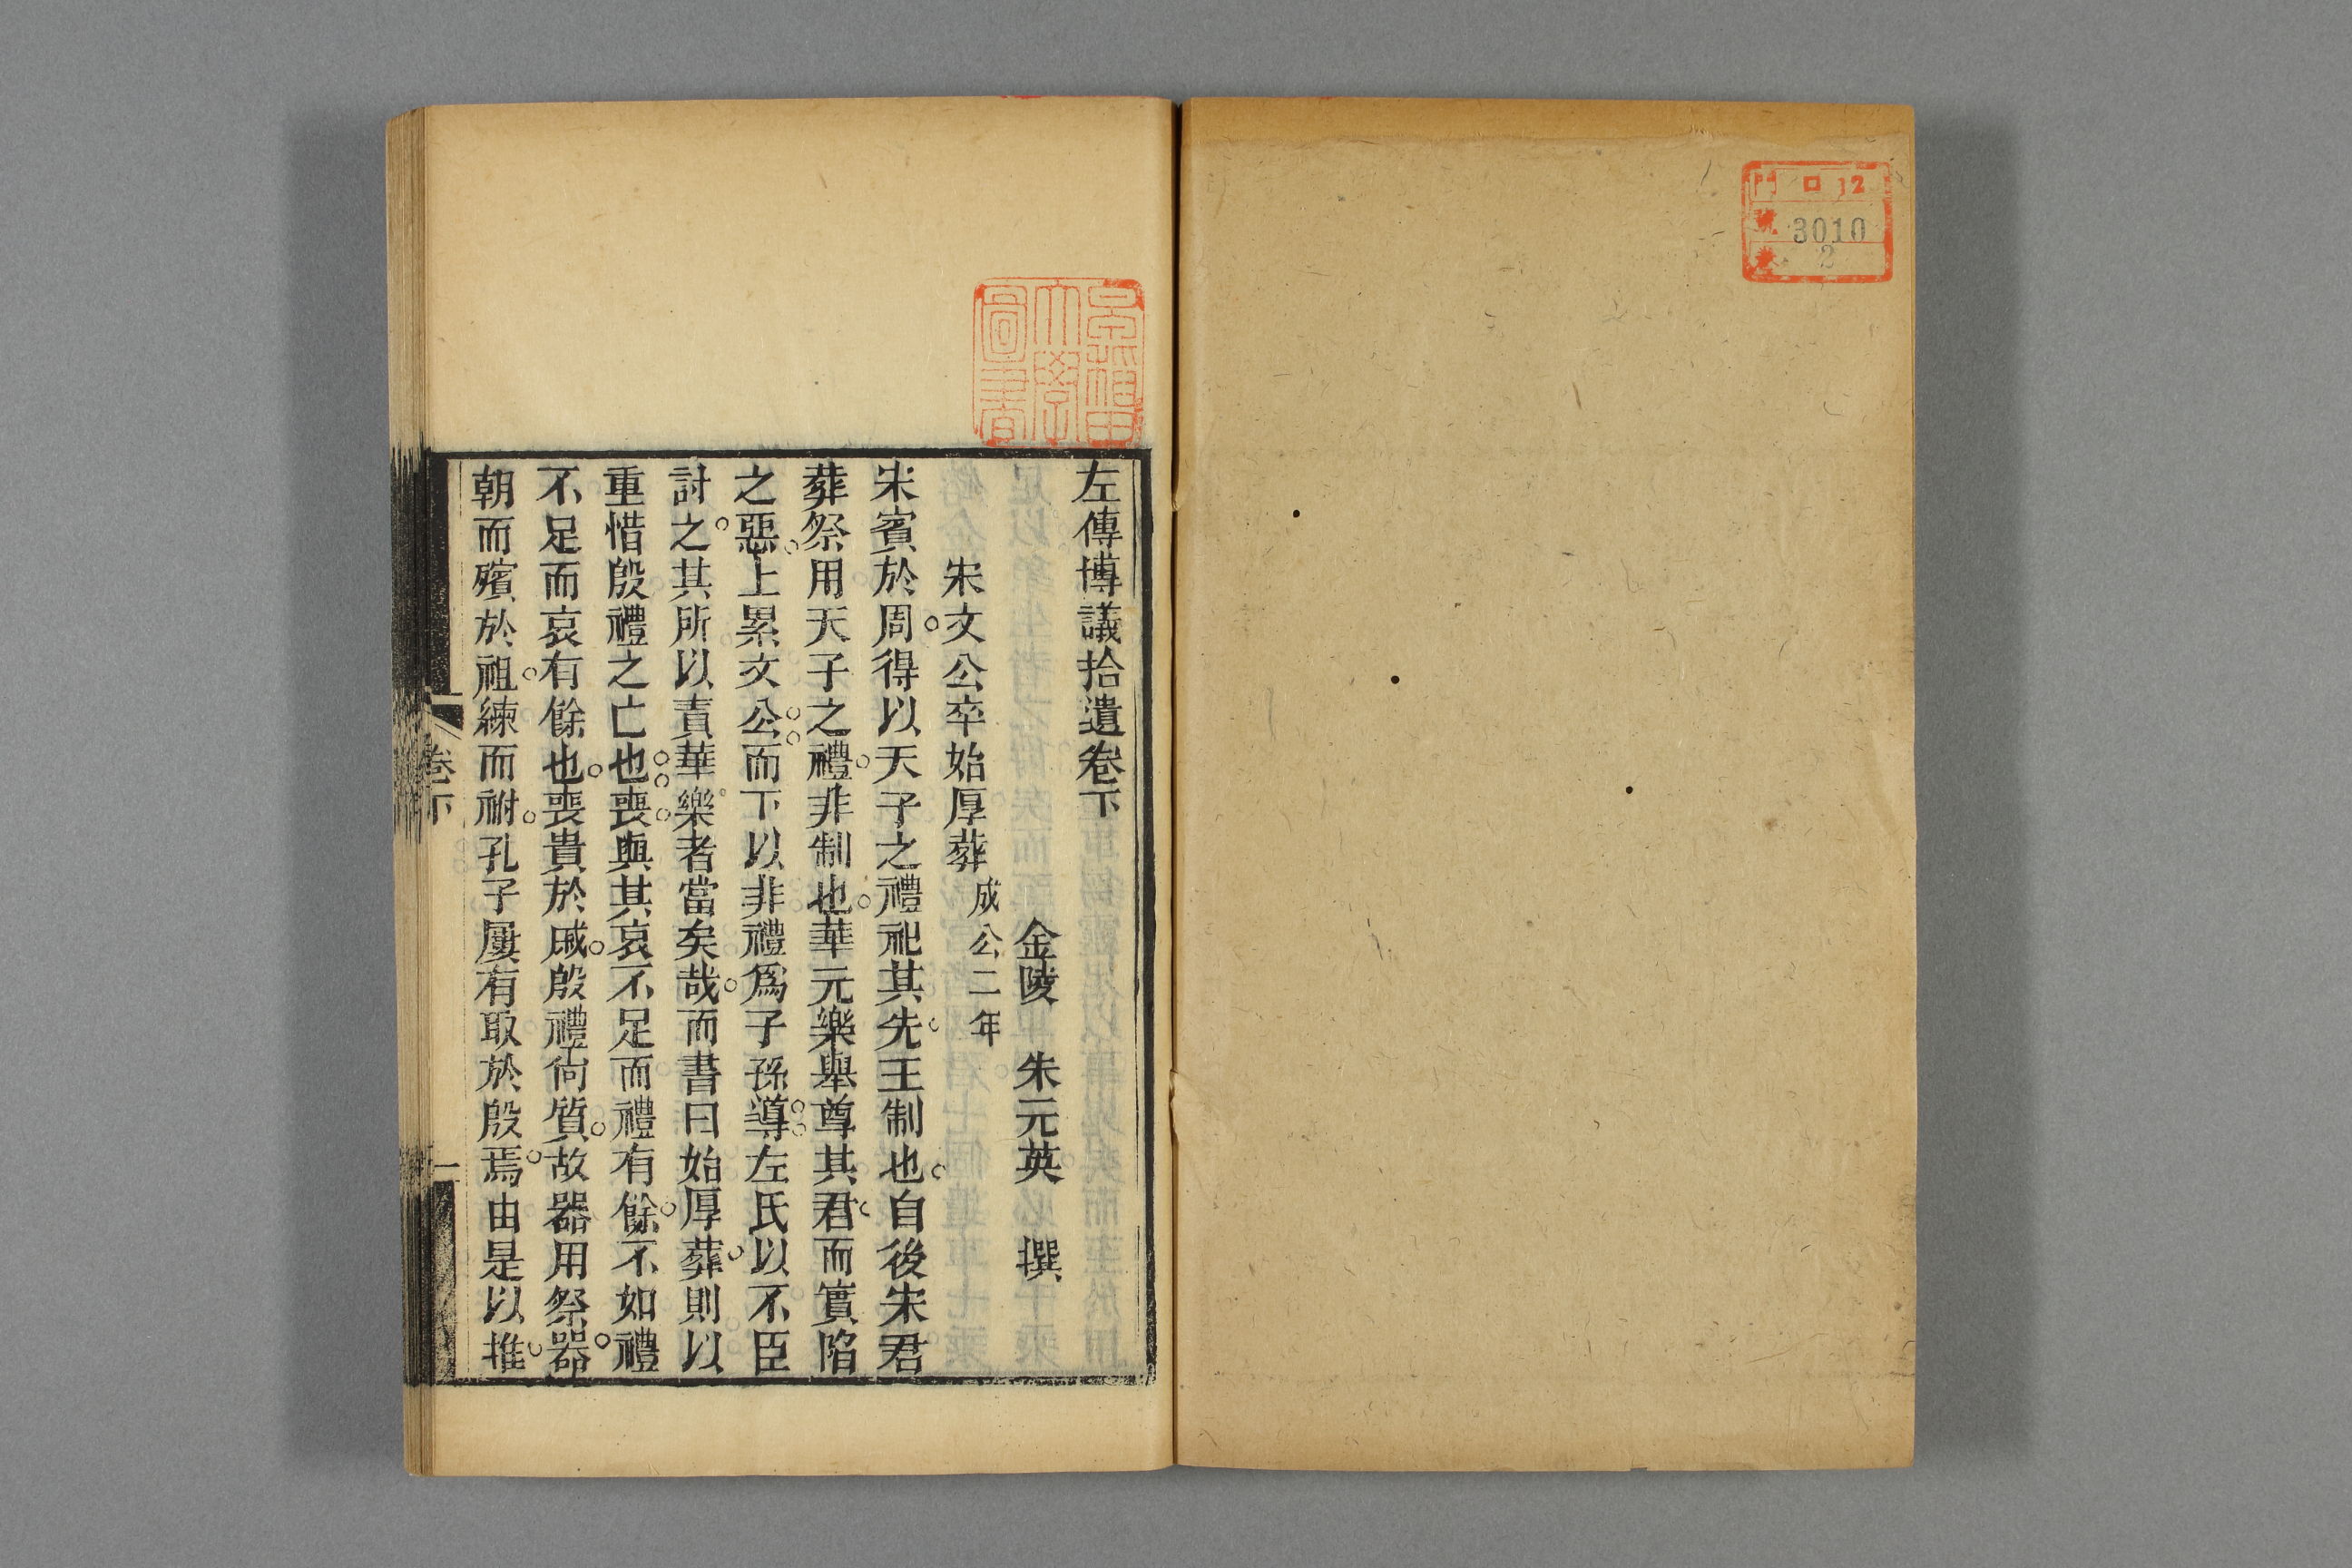 門 ロ 12
號 3010
卷 2
早稻田大學圖書
左傳博議拾遺卷下
金陵 朱元英 撰
宋文公卒始厚葬 成公二年
宋賓於周。得以天子之禮祀其先王制也。自後宋君
葬祭用天子之禮。非制也。華元樂舉尊其君。而實陷
之惡。上累文公。而下以非禮爲子孫導。左氏以不臣
討之。其所以責華樂者當矣哉。而書曰始厚葬。則以
重惜殷禮之亡也。喪與其哀不足而禮有餘。不如禮
不足而哀有餘也。喪貴於戚。殷禮尙質。故器用祭器。
朝而殯於祖。練而祔。孔子屢有取於殷焉。由是以推。
卷下
一